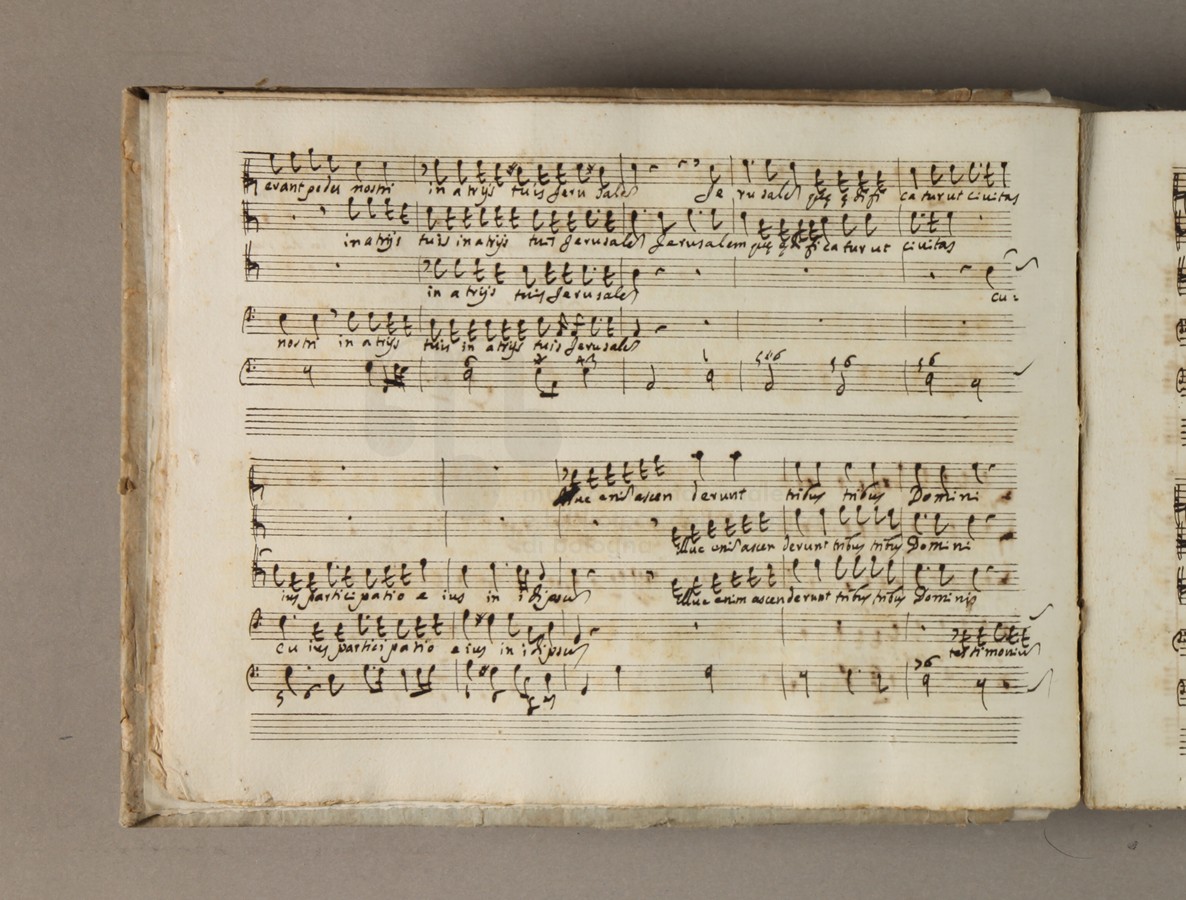 erant pedes nostri in atrijs tuis Jeru sale Je ru sale que edifi ca tur ut civitas
in atrijs tuis in atrijs tuis Jerusale Jerusalem que edificatur ut civitas
in atrijs tuis Jerusale cu
nostri in atrijs tuis in atrijs tuis Jerusale
Illuc eni ascen derunt tribus tribus Domini
Illuc eni ascen derunt tribus tribus Domini
ius participatio e ius in idipsu Illuc enim ascenderunt tribus tribus Domini
cu ius participatio eius in idipsu testimoniu